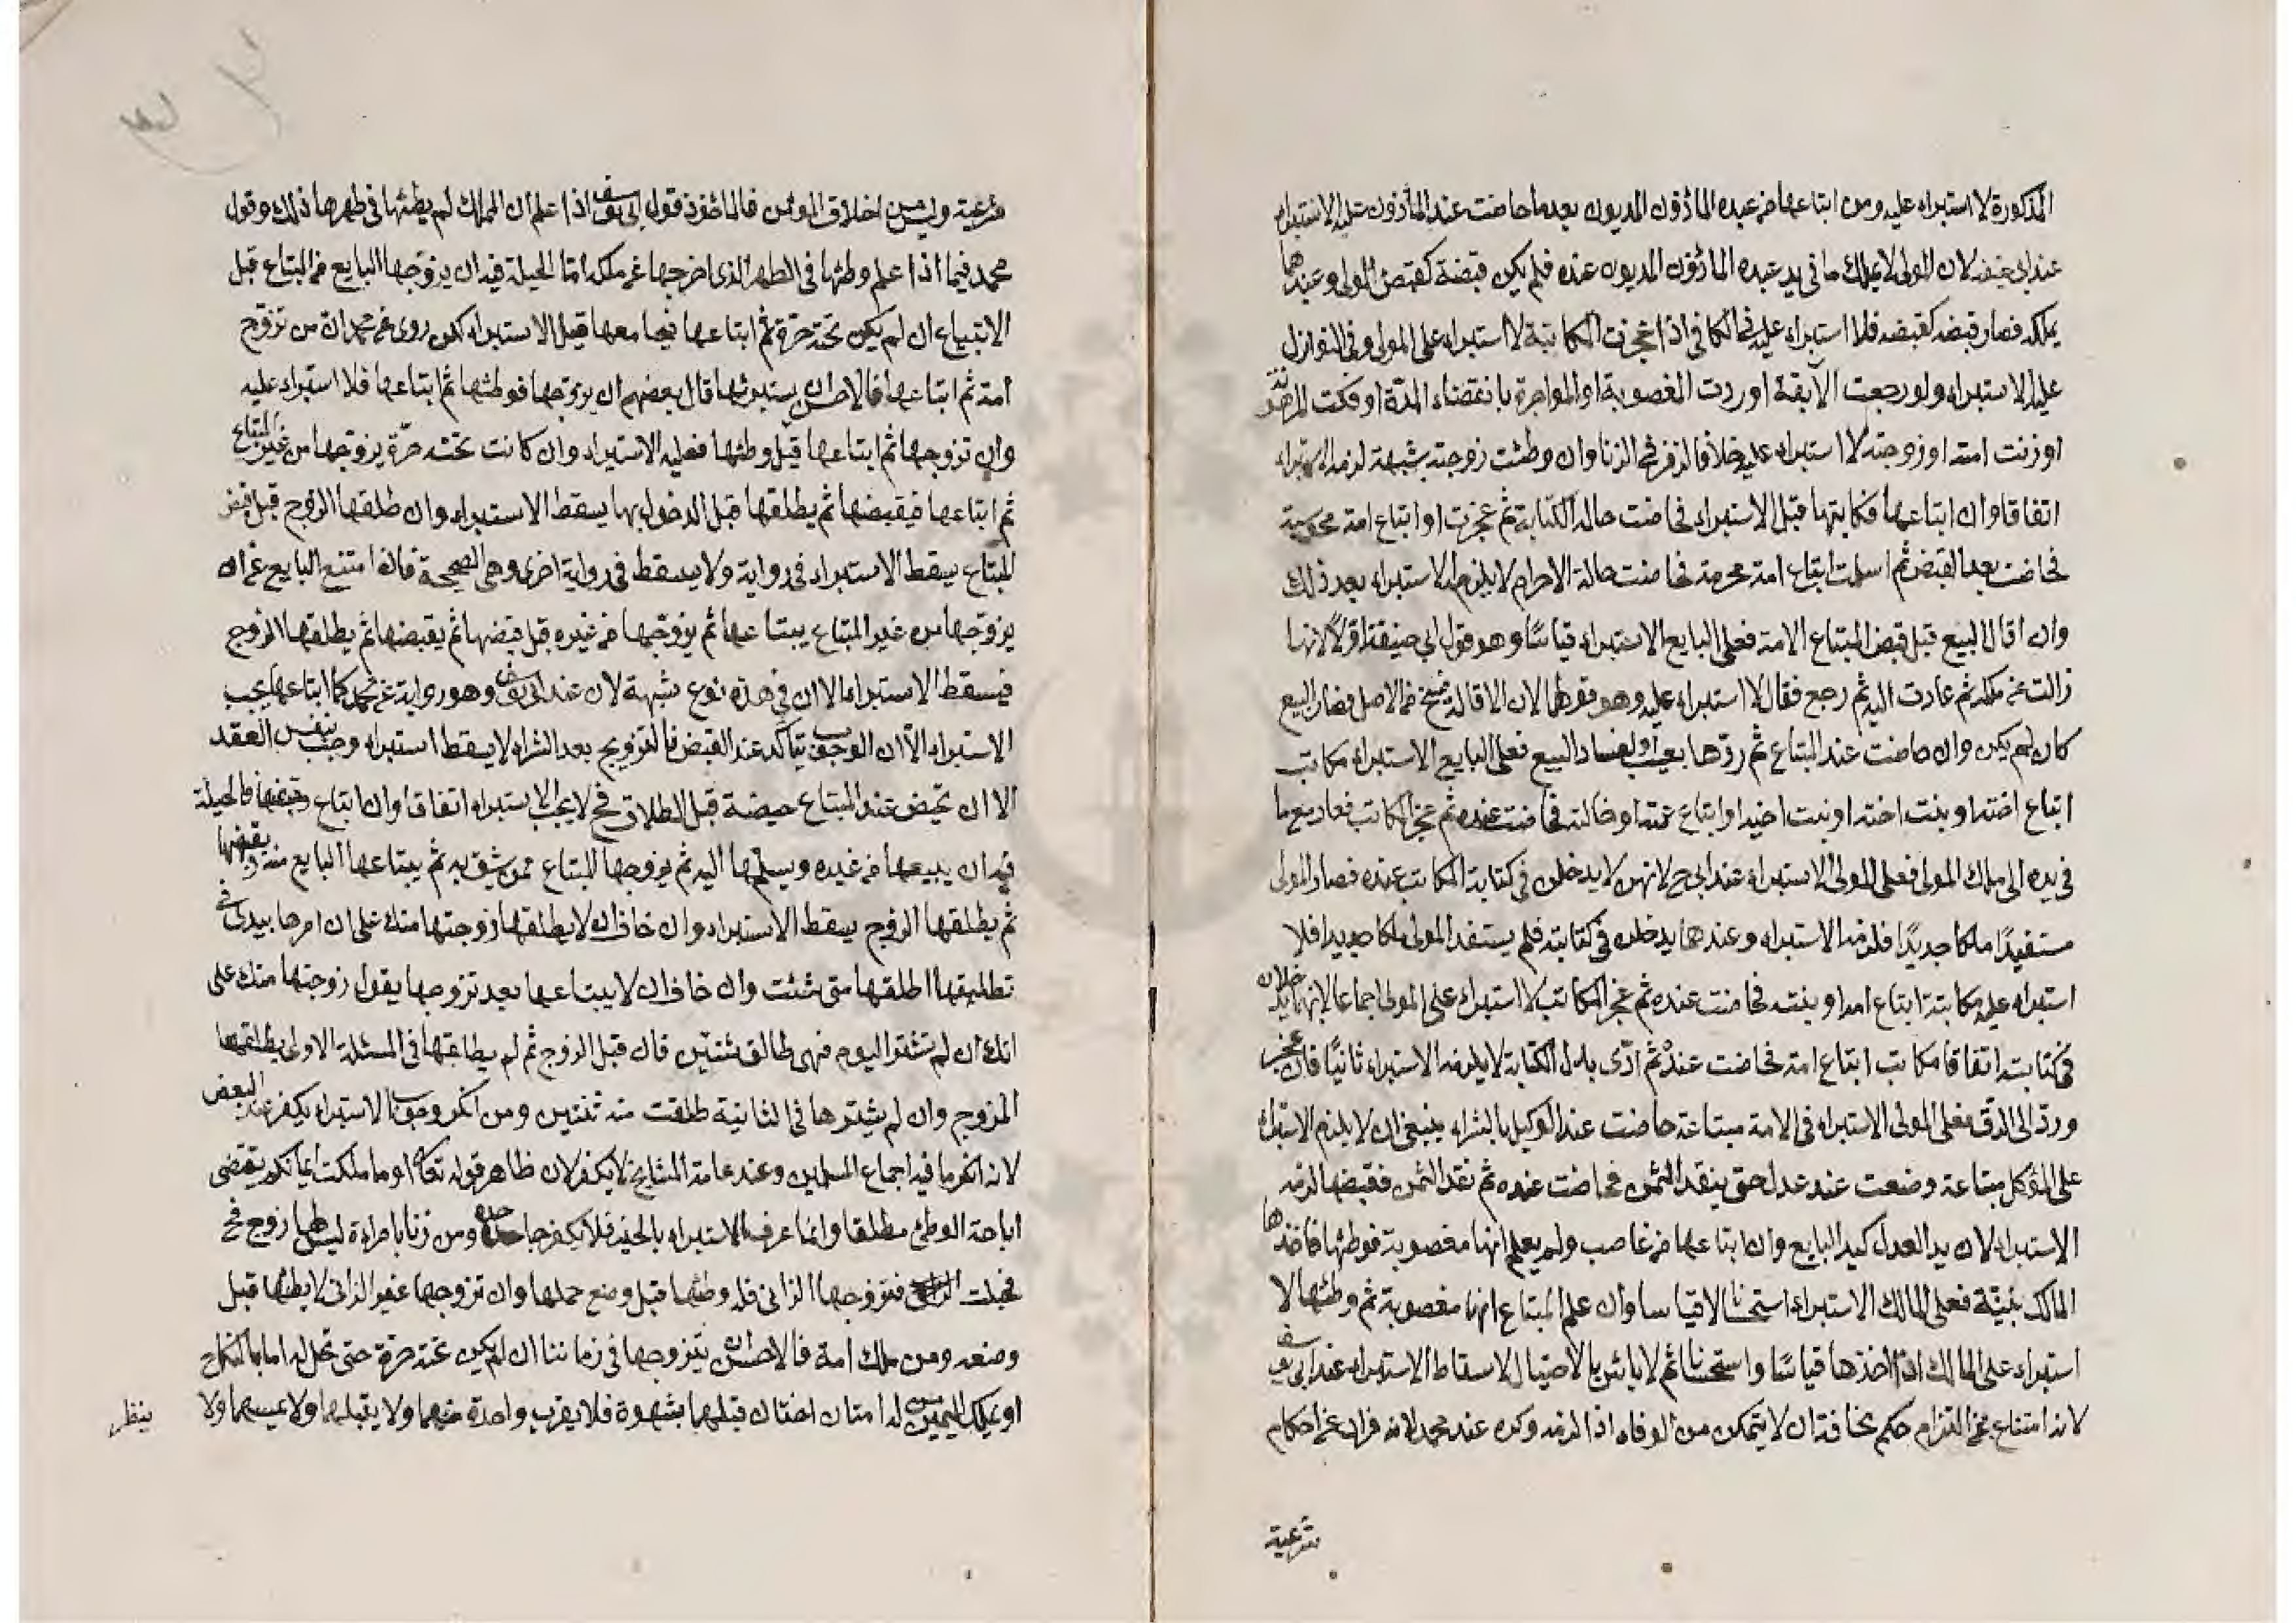 المذكورة لا استبراء عليه ومن ابتاعها من عبده المأذون المديون بعد ما حاضت عند المأذون عليه الاستبراء
عند ابي حنيفه لان المولى لا يملك ما في يد عبده المأذون المديون عنده فلم يكن قبضة كقبض المولى وعندهما
يملكه فصار قبضه كقبضه فلا استبراء عليه في الكافي اذا عجزت المكاتبة لا استبراء على المولى وفي النوازل
عليه الاستبراء ولو رجعت الآبقة او ردت المغصوبة او المواجرة بانقضاء المدة او فكت المرهونة
او زنت امته او زوجته لا استبراء عليه خلافا لزفر في الزنا وان وطئت زوجته بشبهة لزمه الاستبراء
اتفاقا وان ابتاعها فكاتبها قبل الاستبراء فحاضت حالة الكتابة ثم عجزت او ابتاع امة مجوسية
فحاضت بعد القبض ثم اسلمت ابتاع امة محرمة فحاضت حالة الاحرام لا يلزم الاستبراء بعد ذلك
وان اقال البيع قبل قبض المبتاع الامة فعلى البايع الاستبراء قياسًا وهو قول ابي حنيفة اولًا لانها
زالت عن ملكه ثم عادت اليه ثم رجع فقال لا استبراء عليه وهو قولهما لان الاقالة فسخ من الاصل فصار البيع
كان لم يكن وان حاضت عند المبتاع ثم ردها بعيب او لفساد البيع فعلى البايع الاستبراء مكاتب
ابتاع اخته او بنت اخته او بنت اخيه او ابتاع عمته او خالته فحاضت عنده ثم عجز المكاتب فعاد مع ما
في يده الى ملك المولى فعلى المولى الاستبراء عند ابي ح لانهن لا يدخلن في كتابة المكاتب عنده فصار المولى
مستفيدًا ملكا جديدًا فلزمه الاستبراء وعندهما يدخلن في كتابته فلم يستفد المولى ملكا جديدا فلا
استبراء عليه مكاتبة ابتاع امه او بنته فحاضت عنده ثم عجز المكاتب لا استبراء على المولى اجماعا لانهما يدخلان
في كتابته اتفاقا مكاتب ابتاع امة فحاضت عنده ثم ادّى بدل الكتابة لا يلزمه الاستبراء ثانيًا فان عجز
وردّ الى الرق فعلى المولى الاستبراء في الامة مبتاعة حاضت عند الوكيل بالشراء ينبغي ان لا يلزم الاستبراء
على الموكل مبتاعة وضعت عند عدل حتى ينقد الثمن فحاضت عنده ثم نقد الثمن فقبضها لزمه
الاستبراء لان يد العدل كيد البايع وان ابتاعها من غاصب ولم يعلم انها مغصوبة فوطئها فاخذها
المالك ببينة فعلى المالك الاستبراء استحسانا لا قياسا وان علم المبتاع انها مغصوبة ثم وطئها لا
استبراء على المالك اذا اخذها قياسًا واستحسانا ثم لا بأس بالاحتيال لاسقاط الاستبراء عند ابي يوسف
لانه امتناع عن التزام حكم مخافة ان لا يتمكن من الوفاء اذا لزمه وكره عند محمد لانه فرار عن احكام
شرعية
شرعية وليس من اخلاق المؤمن فالمأخوذ قول ابي يوسف اذا علم ان المملك لم يطئها في طهرها ذلك وقول
محمد فيما اذا علم وطئها في الطهر الذي اخرجها عن ملكه اما الحيلة فيه ان يزوجها البايع من المبتاع قبل
الابتياع ان لم يكن تحته حرة ثم ابتاعها فيجامعها قبل الاستبراء لكن روى عن محمد ان من تزوج
امة ثم ابتاعها فالاحسن ان يستبرئها قال بعضهم ان يزوجها فوطئها ثم ابتاعها فلا استبراء عليه
وان تزوجها ثم ابتاعها قبل وطئها فعليه الاستبراء وان كانت تحته حرّة يزوجها من غير المبتاع
ثم ابتاعها فيقبضها ثم يطلقها قبل الدخول بها يسقط الاستبراء وان طلقها الزوج قبل قبض
المبتاع يسقط الاستبراء في رواية ولا يسقط في رواية اخرى وهي الصحيحة فان امتنع البايع عن ان
يزوجها من غير المبتاع يبتاعها ثم يزوجها من غيره قبل قبضها ثم يقبضها ثم يطلقها الزوج
فيسقط الاستبراء الا ان في هذه نوع شبهة لان عند ابي يوسف وهو رواية عن محمد كما ابتاعها يجب
الاستبراء الا ان الوجوب يتأكد عند القبض فالتزويج بعد الشراء لا يسقط استبراء وجب بنفس العقد
الا ان تحيض عند المبتاع حيضة قبل الطلاق فح لا يجب الاستبراء اتفاقا وان ابتاع وقبضها فالحيلة
فيه ان يبيعها من غيره ويسلمها اليه ثم يزوجها للمبتاع ممن يثق به ثم يبتاعها البايع منه ويقبضها
ثم يطلقها الزوج يسقط الاستبراء وان خاف ان لا يطلقها زوجتها منك على ان امرها بيدي في
تطليقها اطلقها متى شئت وان خاف ان لا يبتاعها بعد تزوجها يقول زوجتها منك على
انك ان لم تشتر اليوم فهي طالق ثنتين فان قبل الزوج ثم لم يطلقها في المسئلة الاولى يطلقها
المزوج وان لم يشترها في الثانية طلقت منه ثنتين ومن انكر وجوب الاستبراء يكفر عند البعض
لانه انكر ما فيه اجماع المسلمين وعند عامة المشايخ لا يكفر لان ظاهر قوله تعالى او ما ملكت ايمانكم يقتضي
اباحة الوطئ مطلقا وانما عرف الاستبراء بالخبر فلا يكفر جاحده ومن زنا بامرأة ليس لها زوج فح
فحبلت فتزوجها الزاني فله وطئها قبل وضع حملها وان تزوجها غير الزاني لا يطئها قبل
وضعه ومن ملك امة فالاحسن ان يتزوجها في زماننا ان لم يكن تحته حرة حتى تحل له اما بالنكاح
او بملك اليمين من له امتان اختان قبلهما بشهوة فلا يقرب واحدة منهما ولا يقبلها ولا يمسها ولا
ينظر